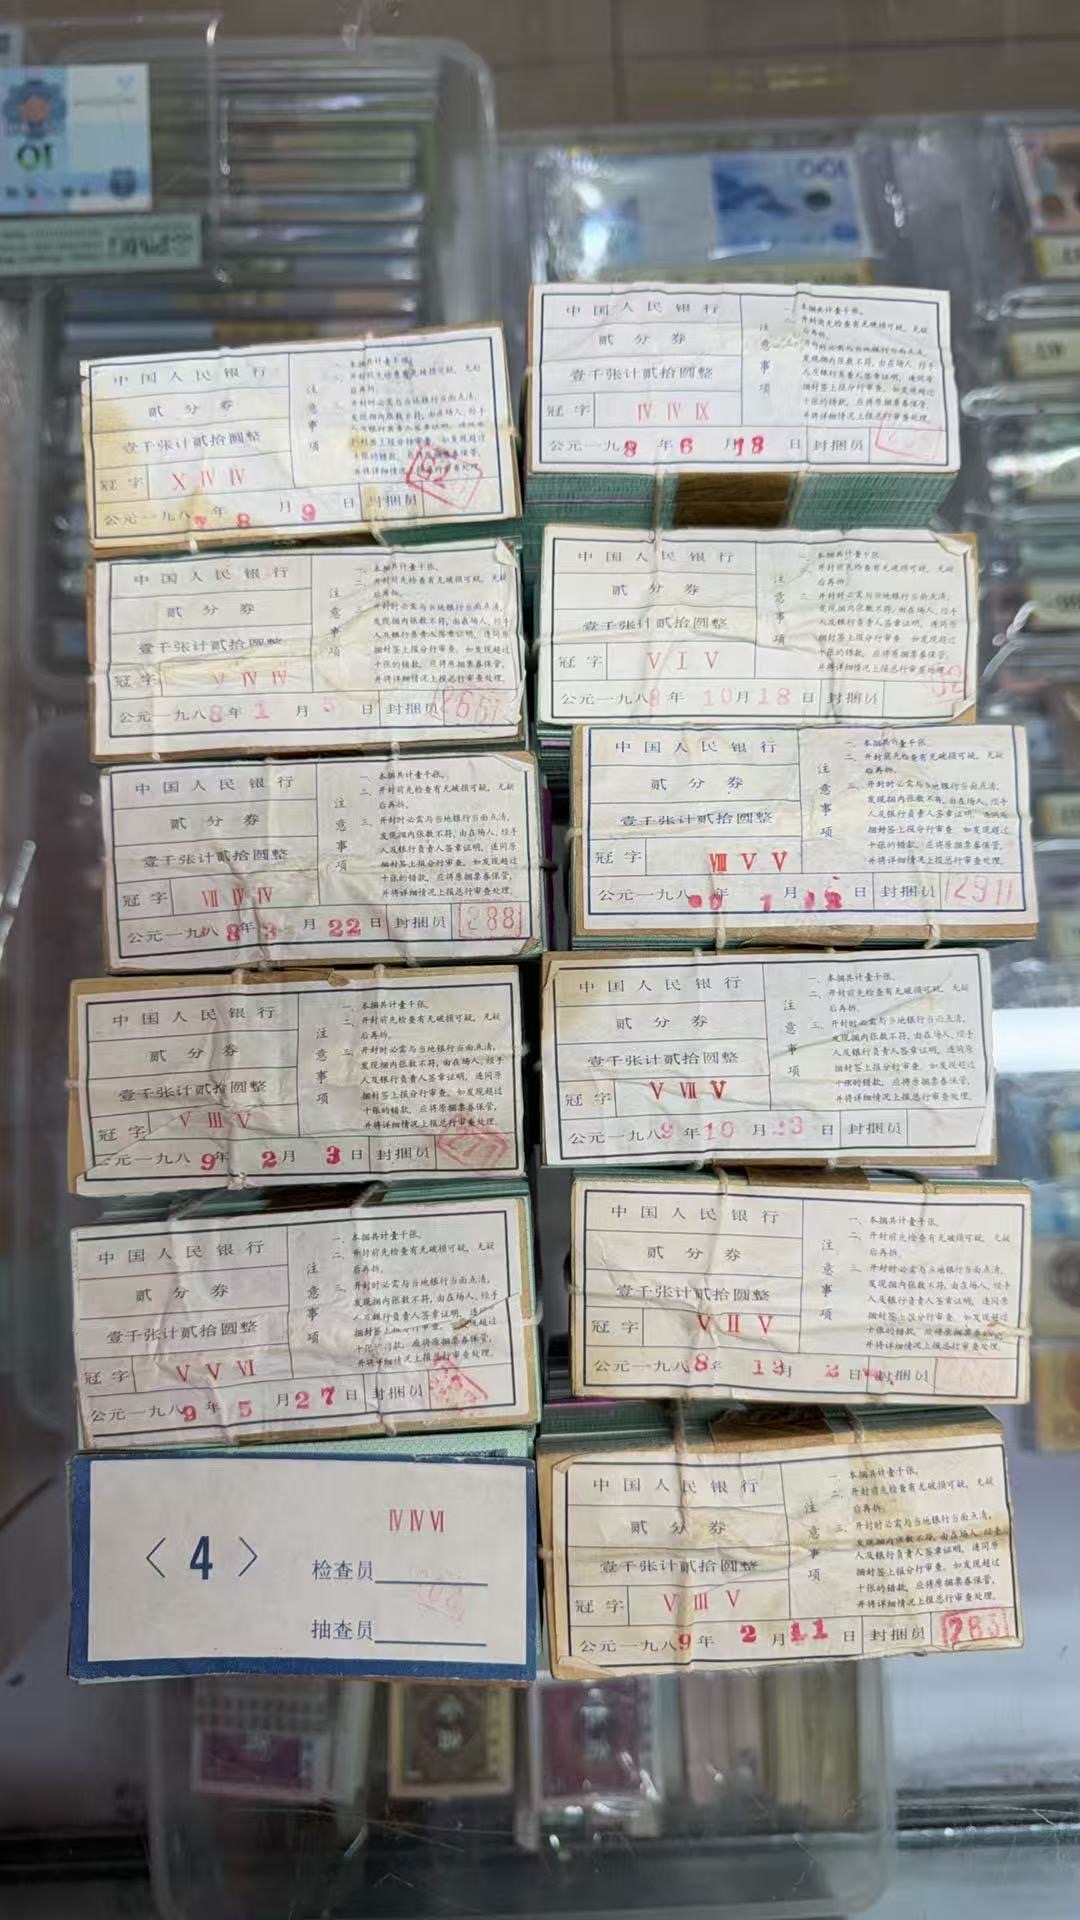 10
100
中国人民银行
贰分券
壹千张计贰拾圆整
冠字 X IV IV
公元一九八 年 8 月 9 日 封捆员
注意事项
一、本捆共计壹千张。
二、开封前先检查有无破损可疑，无疑
后再拆。
三、开封时必需与当地银行当面点清，
发现捆内张数不符，由在场人、经手
中国人民银行
贰分券
壹千张计贰拾圆整
冠字 IV IV IX
公元一九8年6月18日 封捆员
注意事项
一、本捆共计壹千张。
二、开封前先检查有无破损可疑，无疑
后再拆。
三、开封时必需与当地银行当面点清，
发现捆内张数不符，由在场人、经手
人及银行负责人签章证明，连同原
捆封签上报分行审查。如发现超过
十张的错款，应将原捆票券保管，
并将详细情况上报总行审查处理。
中国人民银行
贰分券
壹千张计贰拾圆整
冠字 V IV IV
公元一九八8年1月5日 封捆员
注意事项
一、本捆共计壹千张。
二、开封前先检查有无破损可疑，无疑
后再拆。
三、开封时必需与当地银行当面点清，
发现捆内张数不符，由在场人、经手
人及银行负责人签章证明，连同原
捆封签上报分行审查。如发现超过
十张的错款，应将原捆票券保管，
并将详细情况上报总行审查处理。
中国人民银行
贰分券
壹千张计贰拾圆整
冠字 V I V
公元一九八8年10月18日 封捆员
注意事项
一、本捆共计壹千张。
二、开封前先检查有无破损可疑，无疑
后再拆。
三、开封时必需与当地银行当面点清，
发现捆内张数不符，由在场人、经手
人及银行负责人签章证明，连同原
捆封签上报分行审查。如发现超过
十张的错款，应将原捆票券保管，
并将详细情况上报总行审查处理。
中国人民银行
贰分券
壹千张计贰拾圆整
冠字 VII IV IV
公元一九八8年3月22日 封捆员 288
注意事项
一、本捆共计壹千张。
二、开封前先检查有无破损可疑，无疑
后再拆。
三、开封时必需与当地银行当面点清，
发现捆内张数不符，由在场人、经手
人及银行负责人签章证明，连同原
捆封签上报分行审查。如发现超过
十张的错款，应将原捆票券保管，
并将详细情况上报总行审查处理。
中国人民银行
贰分券
壹千张计贰拾圆整
冠字 VIII V V
公元一九八 年 1月 日 封捆员 291
注意事项
一、本捆共计壹千张。
二、开封前先检查有无破损可疑，无疑
后再拆。
三、开封时必需与当地银行当面点清，
发现捆内张数不符，由在场人、经手
人及银行负责人签章证明，连同原
捆封签上报分行审查。如发现超过
十张的错款，应将原捆票券保管，
并将详细情况上报总行审查处理。
中国人民银行
贰分券
壹千张计贰拾圆整
冠字 V III V
公元一九八9年2月3日 封捆员
注意事项
一、本捆共计壹千张。
二、开封前先检查有无破损可疑，无疑
后再拆。
三、开封时必需与当地银行当面点清，
发现捆内张数不符，由在场人、经手
人及银行负责人签章证明，连同原
捆封签上报分行审查。如发现超过
十张的错款，应将原捆票券保管，
并将详细情况上报总行审查处理。
中国人民银行
贰分券
壹千张计贰拾圆整
冠字 V VII V
公元一九八9年10月 日 封捆员
注意事项
一、本捆共计壹千张。
二、开封前先检查有无破损可疑，无疑
后再拆。
三、开封时必需与当地银行当面点清，
发现捆内张数不符，由在场人、经手
人及银行负责人签章证明，连同原
捆封签上报分行审查。如发现超过
十张的错款，应将原捆票券保管，
并将详细情况上报总行审查处理。
中国人民银行
贰分券
壹千张计贰拾圆整
冠字 V V VI
公元一九八9年5月27日 封捆员
注意事项
一、本捆共计壹千张。
二、开封前先检查有无破损可疑，无疑
后再拆。
三、开封时必需与当地银行当面点清，
发现捆内张数不符，由在场人、经手
人及银行负责人签章证明，连同原
并将详细情况上报总行审查处理。
中国人民银行
贰分券
壹千张计贰拾圆整
冠字 V II V
公元一九八8年12月2日 封捆员
注意事项
一、本捆共计壹千张。
二、开封前先检查有无破损可疑，无疑
后再拆。
三、开封时必需与当地银行当面点清，
发现捆内张数不符，由在场人、经手
人及银行负责人签章证明，连同原
捆封签上报分行审查。如发现超过
十张的错款，应将原捆票券保管，
并将详细情况上报总行审查处理。
IV IV VI
〈 4 〉
检查员
抽查员
中国人民银行
贰分券
壹千张计贰拾圆整
冠字 V III V
公元一九八9年2月11日 封捆员 283
注意事项
一、本捆共计壹千张。
二、开封前先检查有无破损可疑，无疑
后再拆。
三、开封时必需与当地银行当面点清，
发现捆内张数不符，由在场人、经手
人及银行负责人签章证明，连同原
捆封签上报分行审查。如发现超过
十张的错款，应将原捆票券保管，
并将详细情况上报总行审查处理。